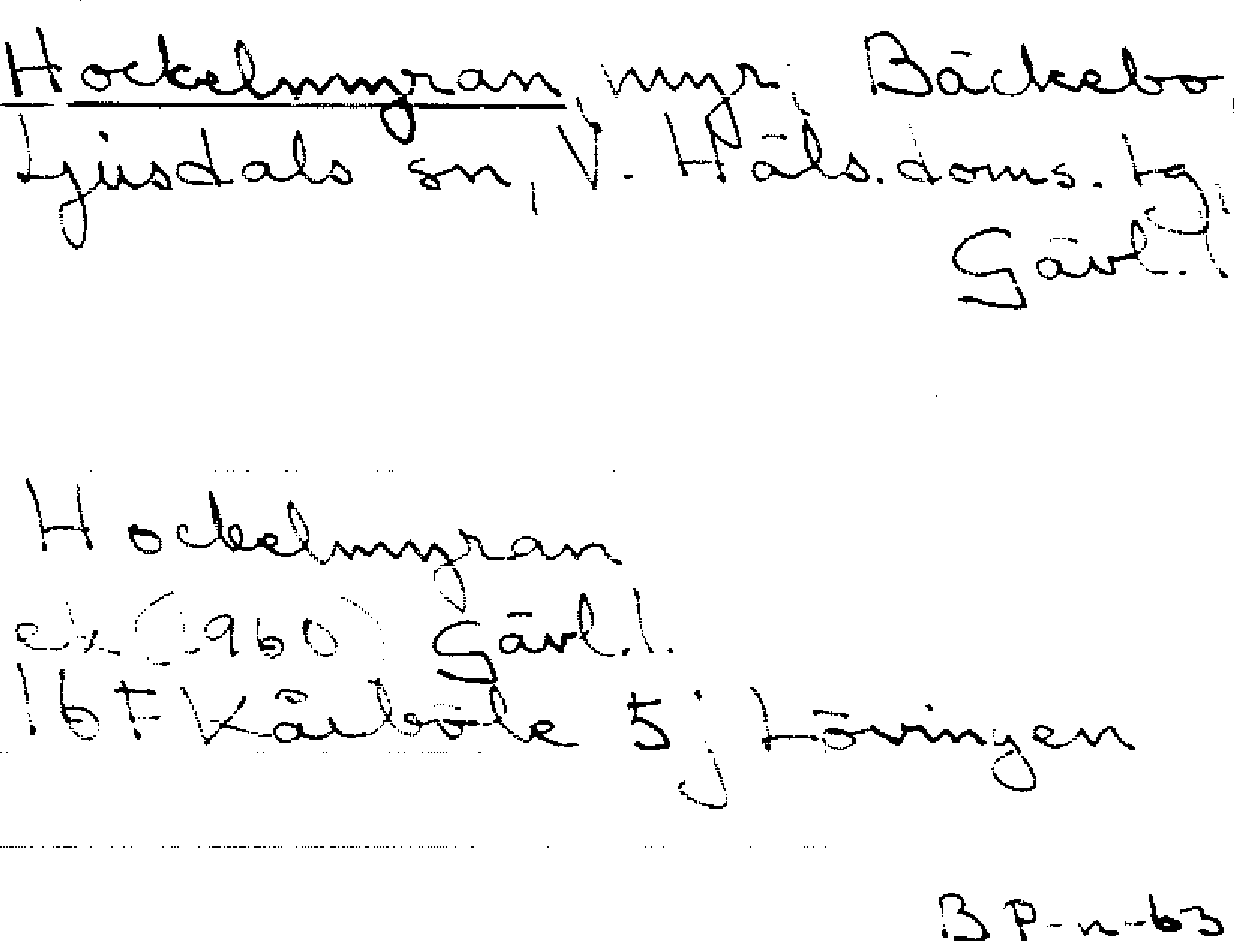 Hockelmyran, myr, Bäckebo,
Ljusdals sn, V. Häls. doms. tg,
Gävl. l.
Hockelmyran
ek (1960) Gävl. l.
16 F Kårböle 5 j Lövingen
BP-n-63